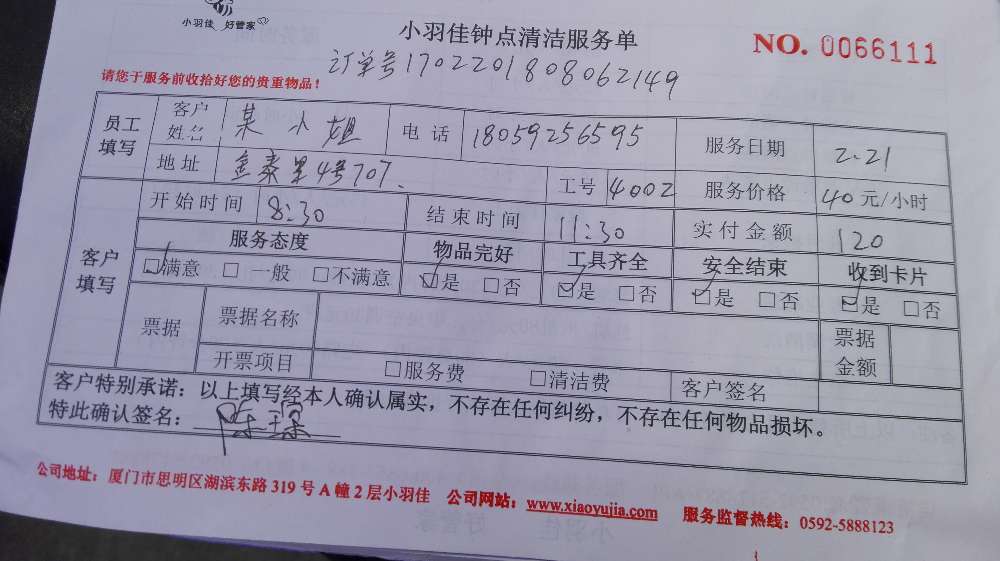 小羽佳 好管家
小羽佳钟点清洁服务单
NO. 0066111
订单号1702201808062149
请您于服务前收拾好您的贵重物品！
员工填写 客户姓名 某小姐 电话 18059256595 服务日期 2.21
地址 金泰里4号707. 工号 4002 服务价格 40元/小时
客户填写 开始时间 8:30 结束时间 11:30 实付金额 120
服务态度 物品完好 工具齐全 安全结束 收到卡片
☑满意 □一般 □不满意 ☑是 □否 ☑是 □否 ☑是 □否 ☑是 □否
票据 票据名称 票据金额
开票项目 □服务费 □清洁费 客户签名
客户特别承诺：以上填写经本人确认属实，不存在任何纠纷，不存在任何物品损坏。
特此确认签名：陈琛
公司地址：厦门市思明区湖滨东路319号A幢2层小羽佳 公司网站：www.xiaoyujia.com 服务监督热线：0592-5888123